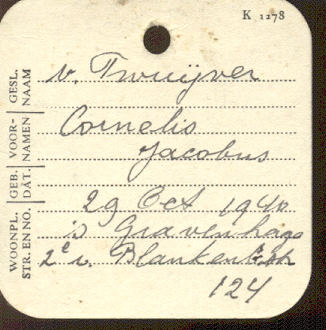 K 1278
GESL. NAAM
v. Truijver
VOOR-NAMEN
Cornelis
Jacobus
GEB. DAT.
29 Oct 1940
WOONPL. STR. EN NO.
's Gravenhage
2e v. Blankenb.
124